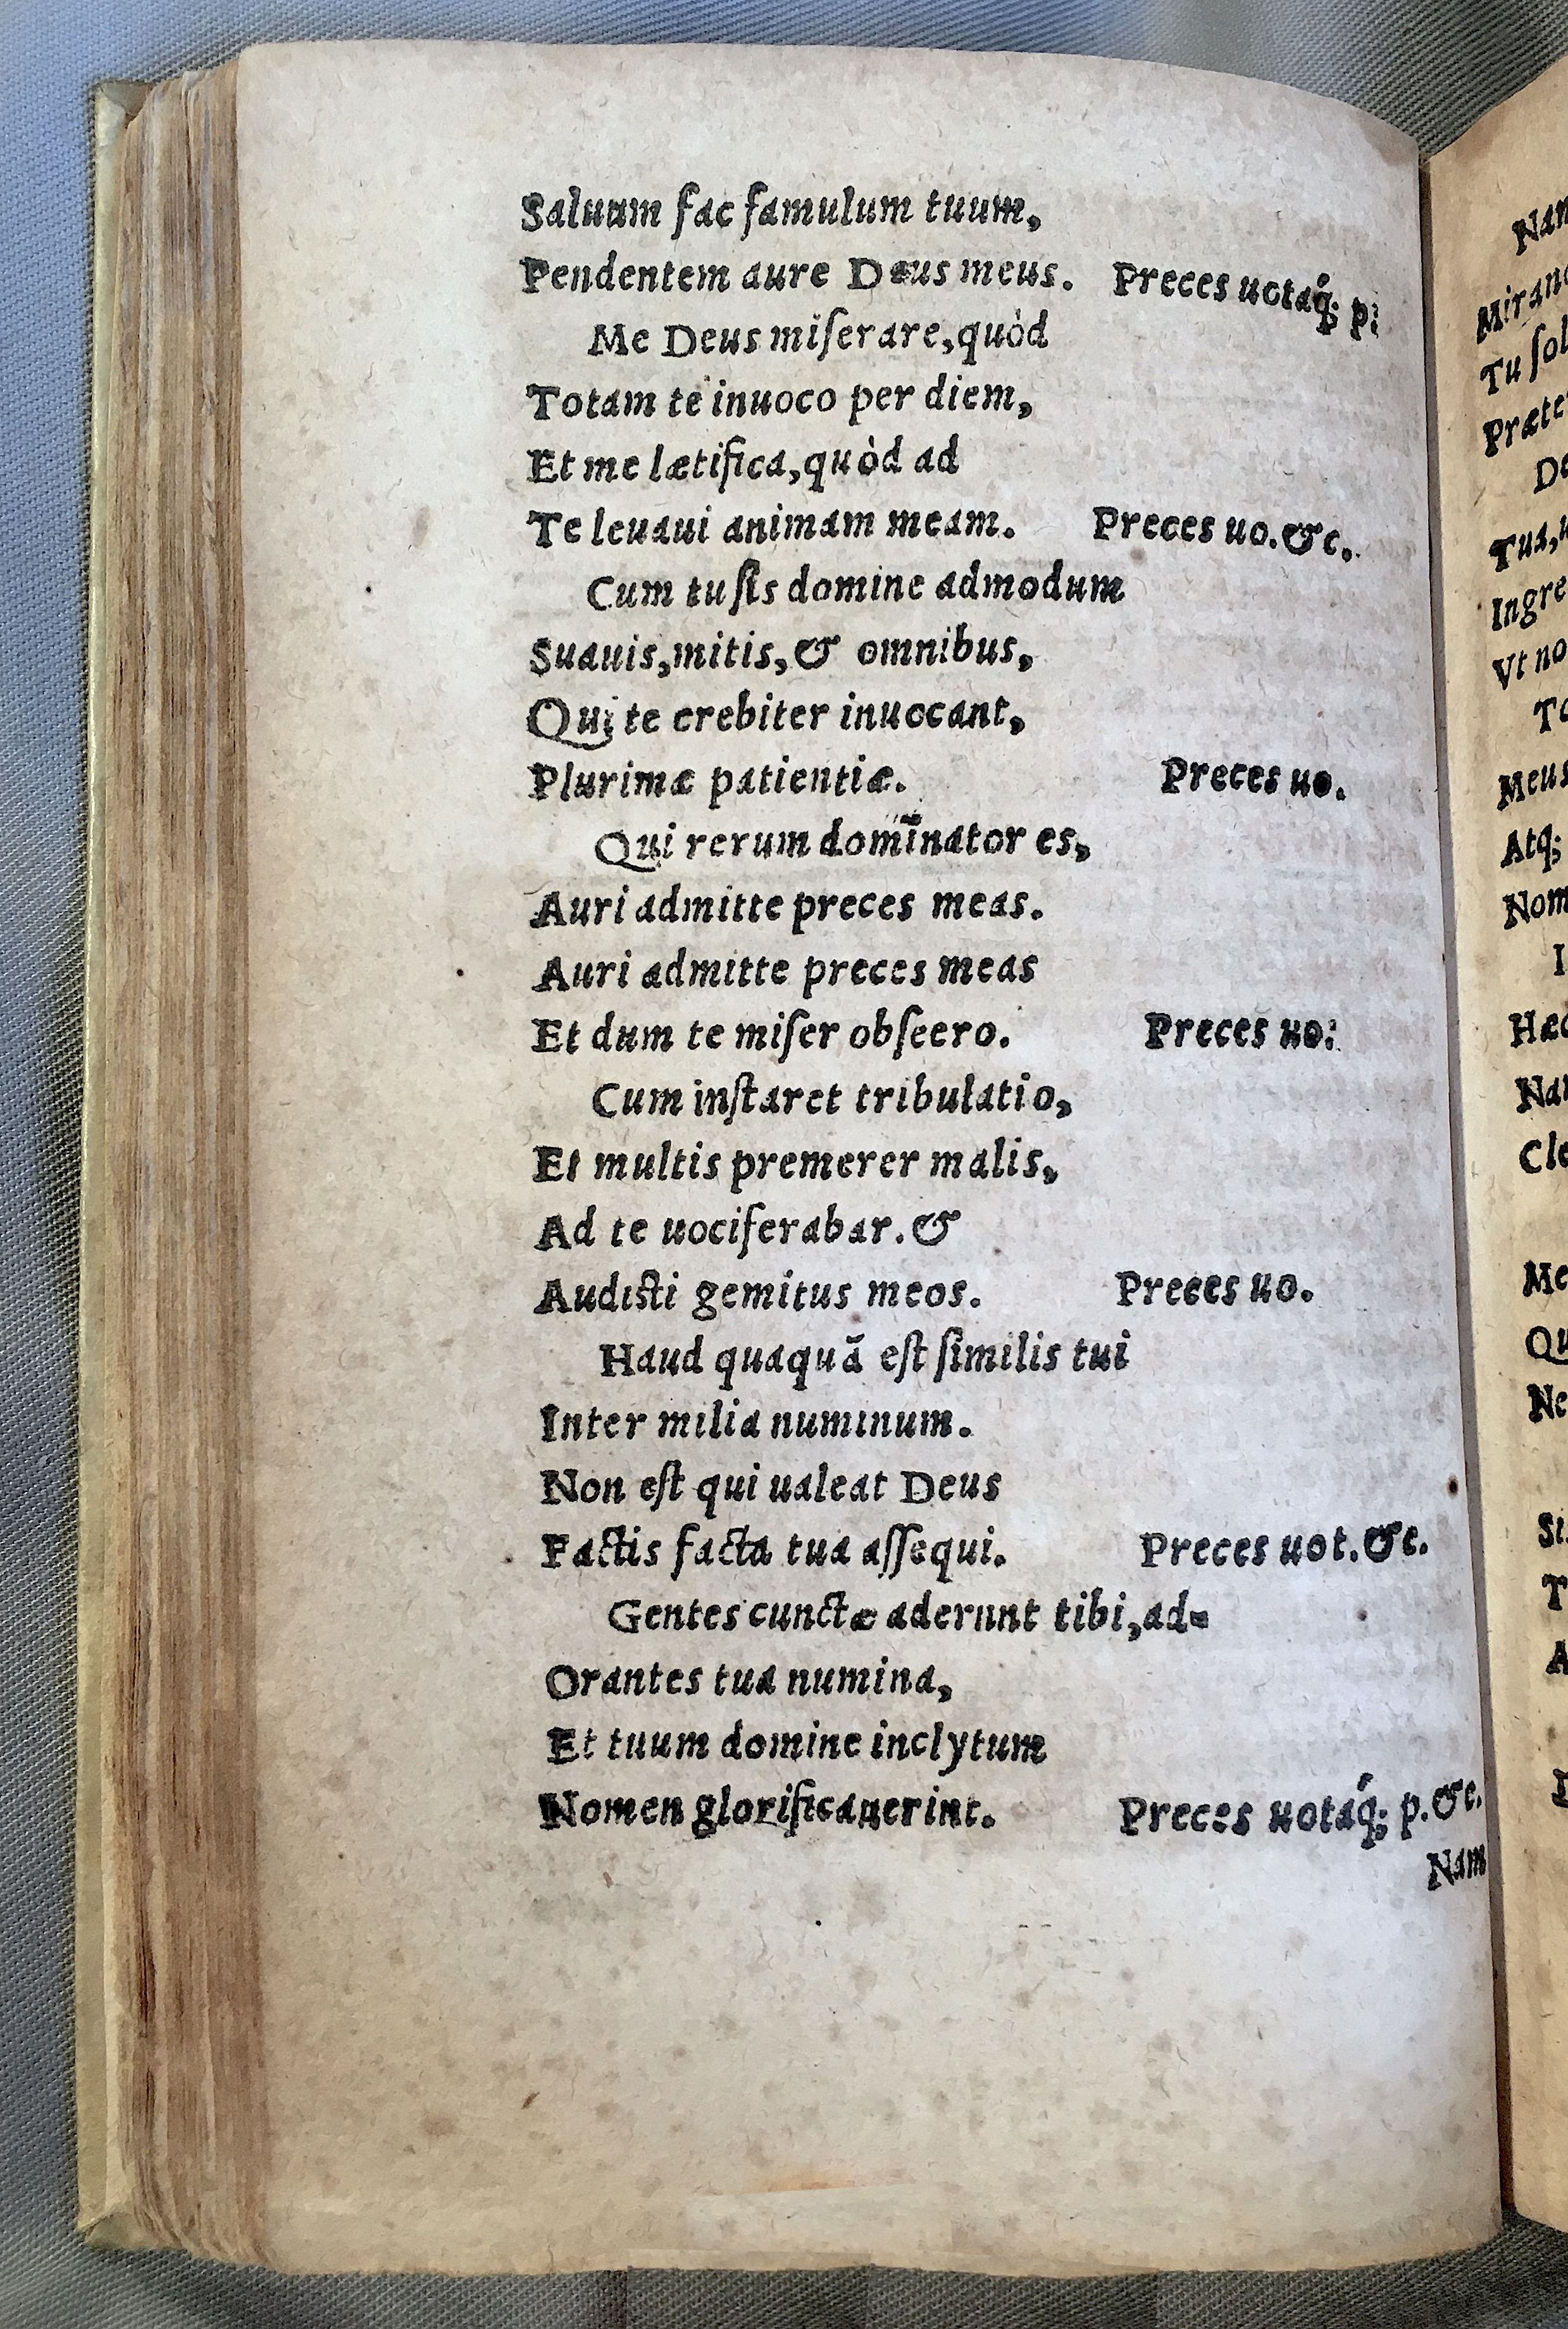 Saluum fac famulum tuum,
Pendentem aure Deus meus. Preces uotaq́; p:
Me Deus miſerare,quòd
Totam te inuoco per diem,
Et me lætifica,quòd ad
Te leuaui animam meam. Preces uo.&c.
Cum tu ſis domine admodum
Suauis,mitis,& omnibus,
Qui te crebiter inuocant,
Plurimæ patientiæ. Preces uo.
Qui rerum domīnator es,
Auri admitte preces meas.
Auri admitte preces meas
Et dum te miſer obſecro. Preces uo:
Cum inſtaret tribulatio,
Et multis premerer malis,
Ad te uociferabar.&
Audiſti gemitus meos. Preces uo.
Haud quaquā eſt ſimilis tui
Inter milia numinum.
Non eſt qui ualeat Deus
Factis facta tua aſſequi. Preces uot.&c.
Gentes cunctæ aderunt tibi,ad=
Orantes tua numina,
Et tuum domine inclytum
Nomen glorificauerint. Preces uotaq́; p.&c.
Nam
Tu ſol
Tua,
Vt no
Meus
Atq;
Nom
I
Cle
Me
Qu
Ne